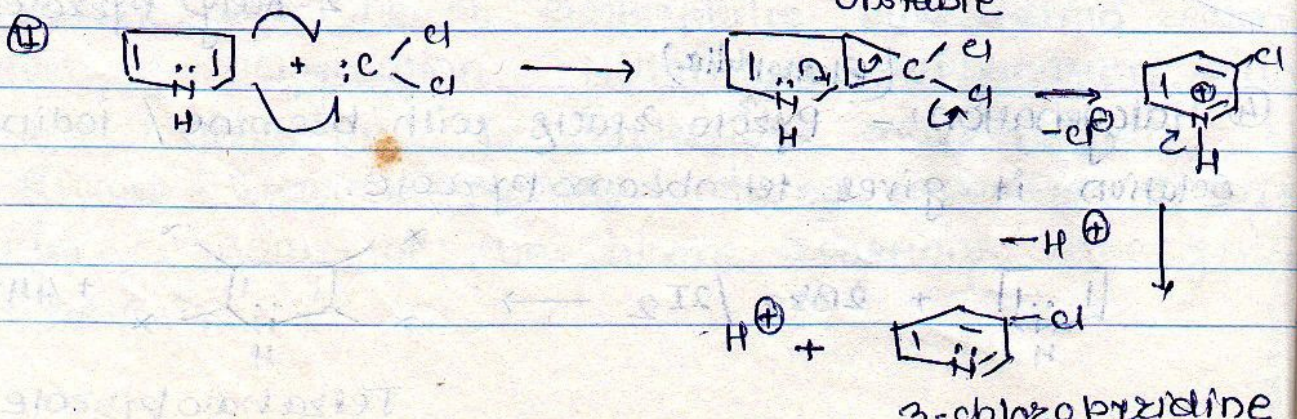 unstable
II + :C Cl Cl → C Cl Cl → Cl
N H N H -Cl⊖ ⊕ N H
-H⊕
H⊕ + N Cl
3-chloropyridine